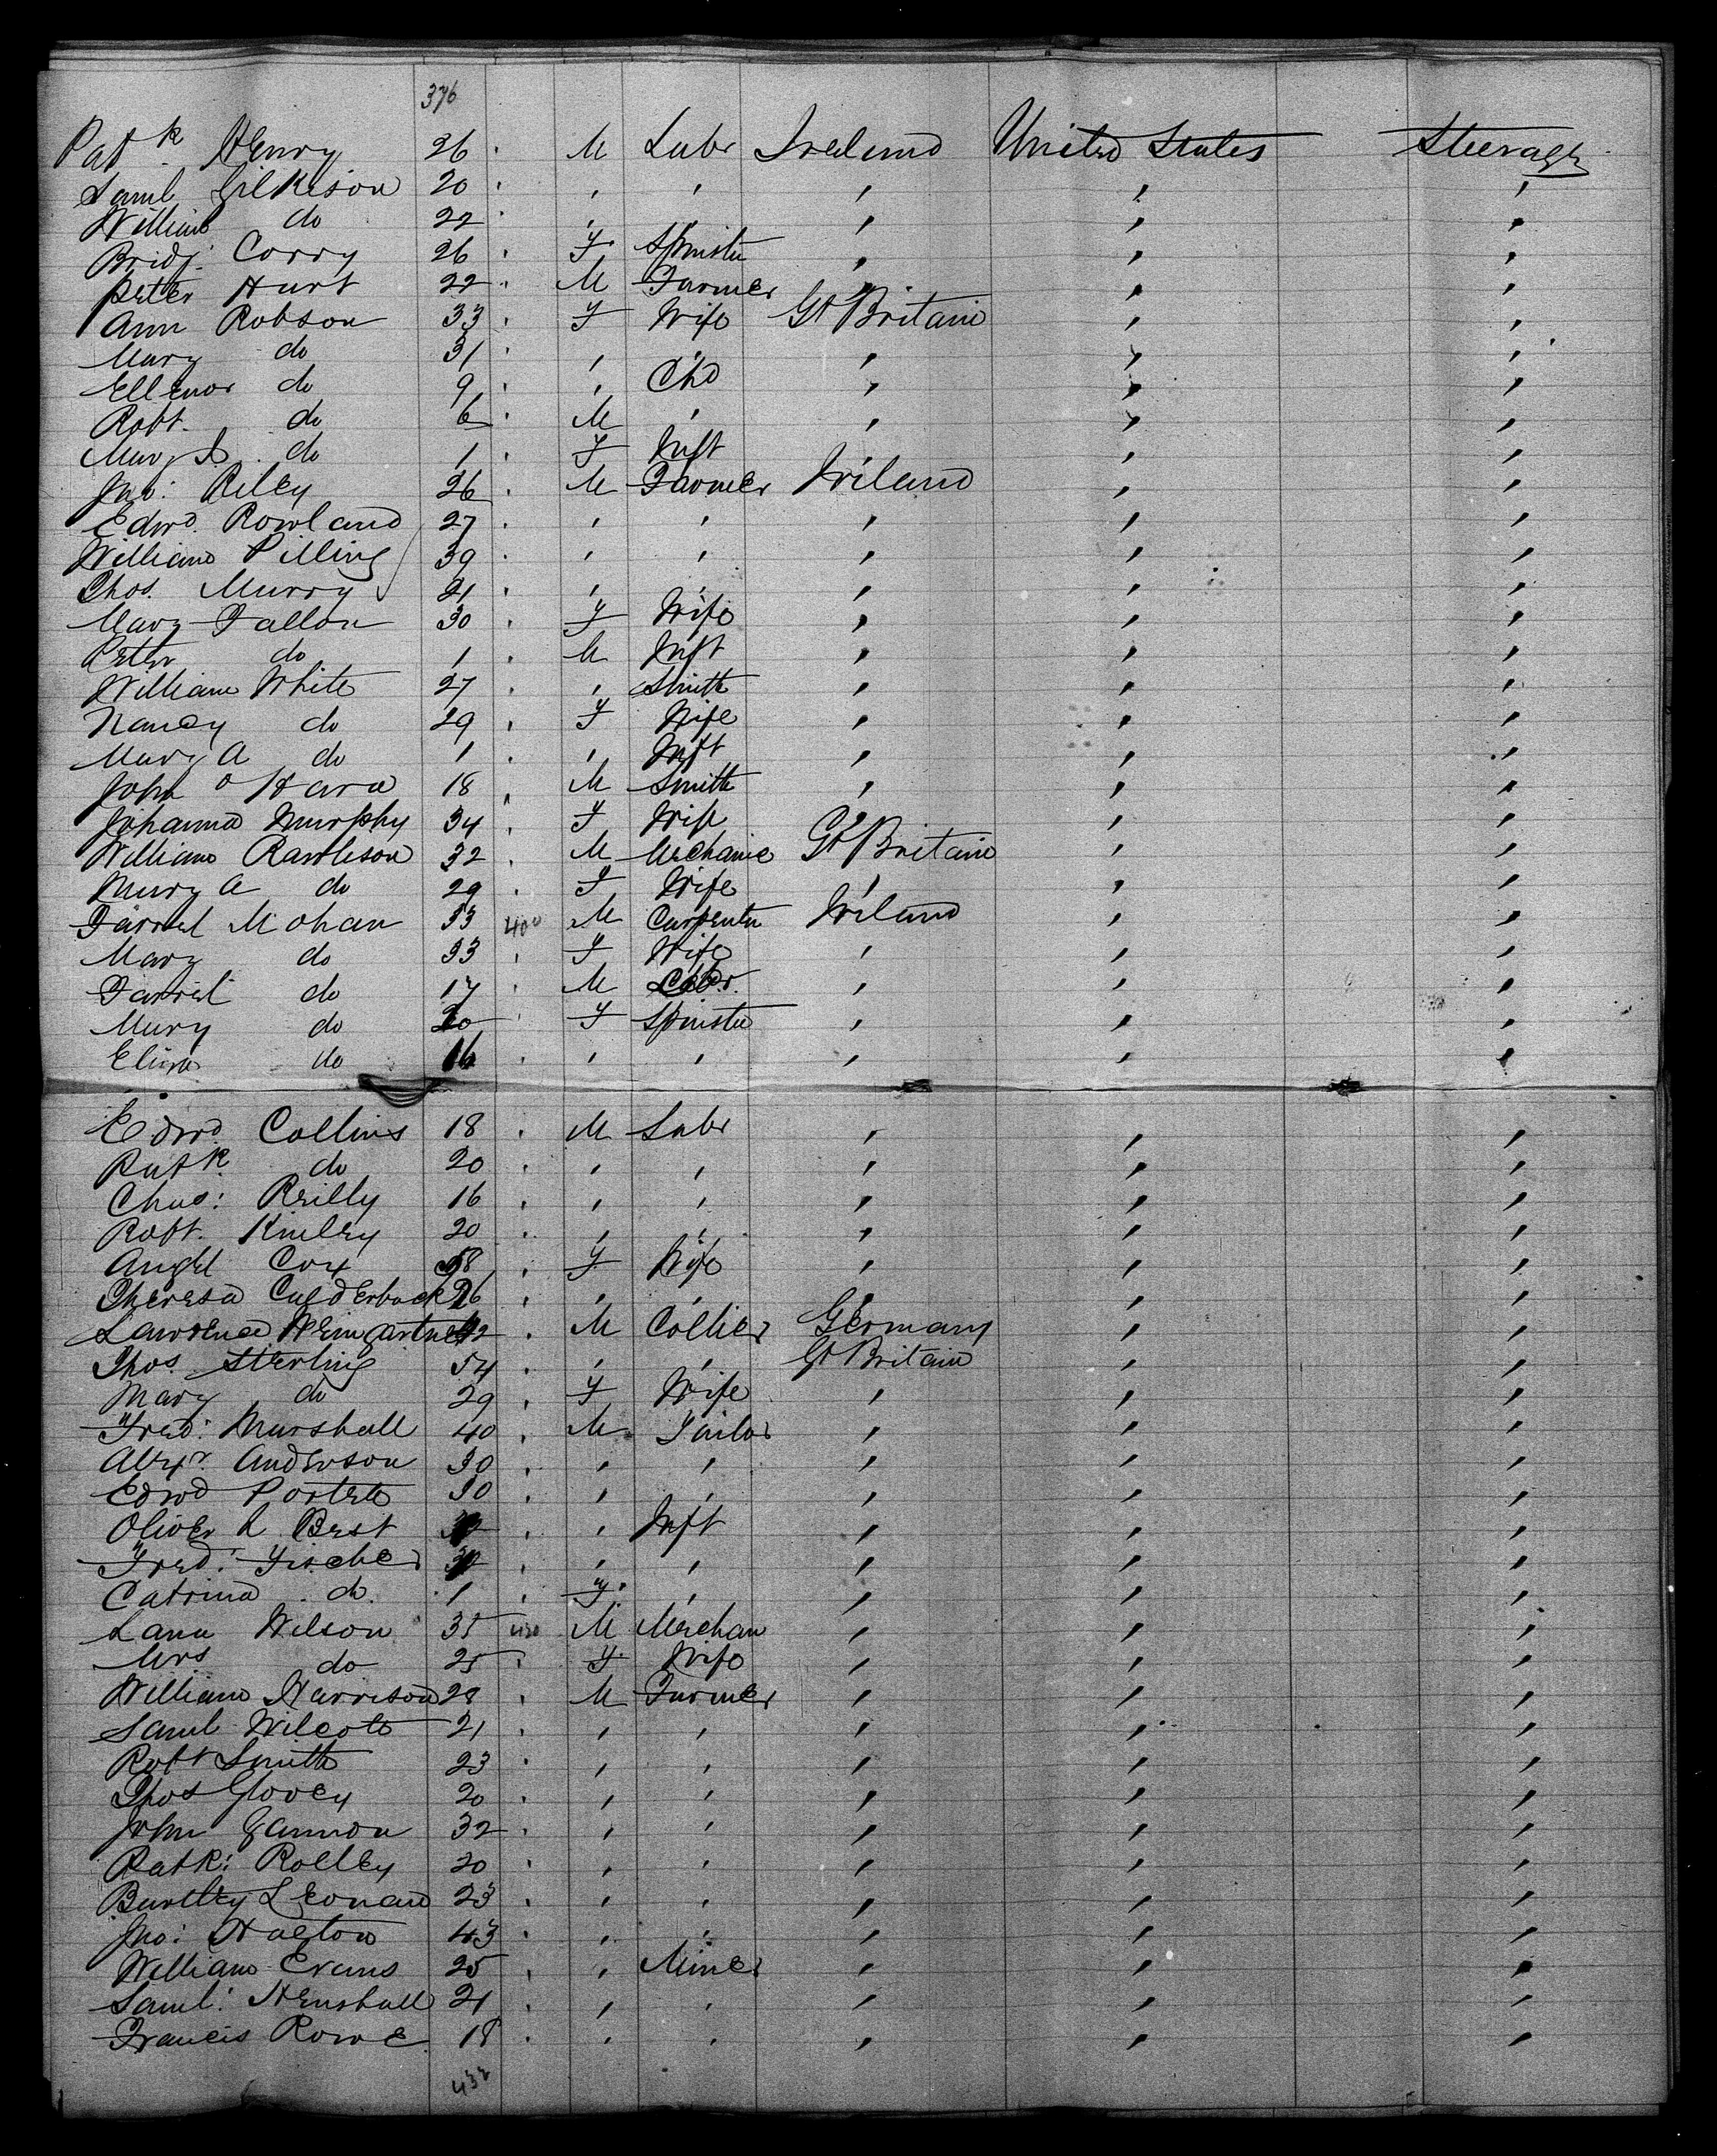 376
Patk Henry 26 M Labr Ireland United States Steerage
Saml Gilkison 20 , , , , ,
William do 22 , , , , ,
Bridj Corry 26 F Spinster , , ,
Peter Hurt 22 M Farmer , , ,
Ann Robson 33 F Wife Gt Britain , ,
Mary do 31 , , , , ,
Ellenor do 9 , Chd , , ,
Robt. do 6 M , , , ,
do 1 F Inft , , ,
Jno: Riley 26 M Farmer Ireland , ,
Edwd. Rowland 27 , , , , ,
William Pilling 39 , , , , ,
Thos. Murry 21 , , , , ,
Mary Fallon 30 F Wife , , ,
Peter do 1 M Inft , , ,
William White 27 , Smith , , ,
Nancy do 29 F Wife , , ,
Mary A do 1 , Inft , , ,
John o Hara 18 M Smith , , ,
Johanna Murphy 34 F Wife , , ,
William Rawleson 32 M Mechanic Gt Britain , ,
Mary A do 29 F Wife , , ,
Farrel Mohan 53 400 M Carpenter Ireland , ,
Mary do 33 F Wife , , ,
Farrel do 17 M Labr. , , ,
Mary do 20 F Spinster , , ,
Eliza do 16 , , , , ,
Edwd. Collins 18 M Labr , , ,
Patk. do 20 , , , , ,
Chas: Reilly 16 , , , , ,
Robt. Kinley 20 , , , , ,
Cox 58 F Wife , , ,
Theresa Calderback 26 , , , , ,
Lawrence Weingartner 42 M Collier Germany , ,
Thos. Sterling 54 , , Gt Britain , ,
Mary do 29 F Wife , , ,
Fred: Marshall 40 M Tailor , , ,
Alexr. Anderson 30 , , , , ,
Edwd Porteto 30 , , , , ,
Oliver L Best , Inft , , ,
Fred: Fischer , , , , ,
Catrina do. 1 F , , , ,
Lana Wilson 35 430 M Merchan , , ,
Mrs do 25 F Wife , , ,
William Harrison 28 M Farmer , , ,
Saml Wilcoto 21 , , , , ,
Robt Smith 23 , , , , ,
Thos Glovey 20 , , , , ,
John Gannon 32 , , , , ,
Patk: Rolley 20 , , , , ,
Bartley Leonard 23 , , , , ,
Jno: Halton 43 , , , , ,
William Evans 25 , Miner , , ,
Saml: Henshall 21 , , , , ,
Francis Rowe 18 , , , , ,
432